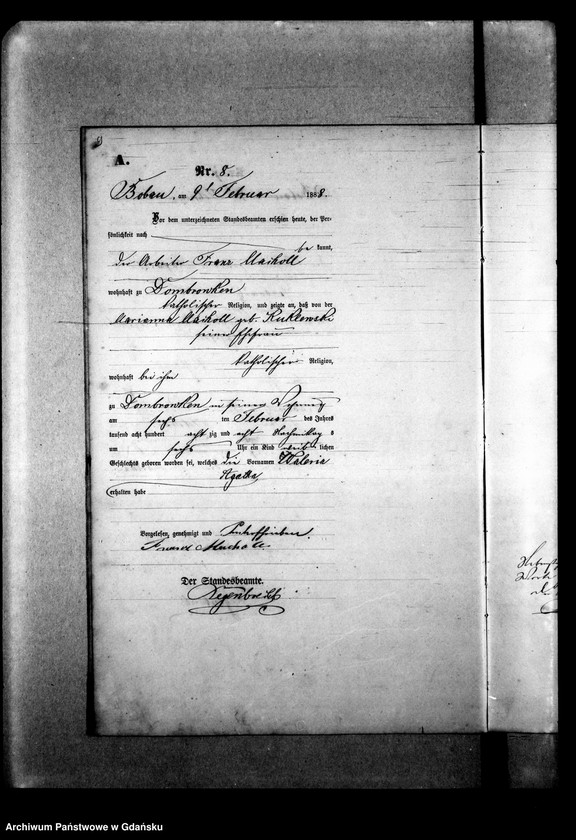 A.
Nr. 8.
Bobau, am 9t Februar 1888.
Vor dem unterzeichneten Standesbeamten erschien heute, der Per-
sönlichkeit nach
be kannt,
der Arbeiter Franz Maikoll
wohnhaft zu Dombrowken
katholischer Religion, und zeigte an, daß von der
Marianna Maikoll geb. Kuklewski
seiner Ehefrau
katholischer Religion,
wohnhaft bei ihm
zu Dombrowken in seiner Wohnung
am sechs ten Februar des Jahres
tausend acht hundert acht zig und acht Nachmittag s
um sechs Uhr ein Kind weib lichen
Geschlechts geboren worden sei, welches die Vornamen Waleria
Agatha
erhalten habe
Vorgelesen, genehmigt und unterschrieben.
Der Standesbeamte.